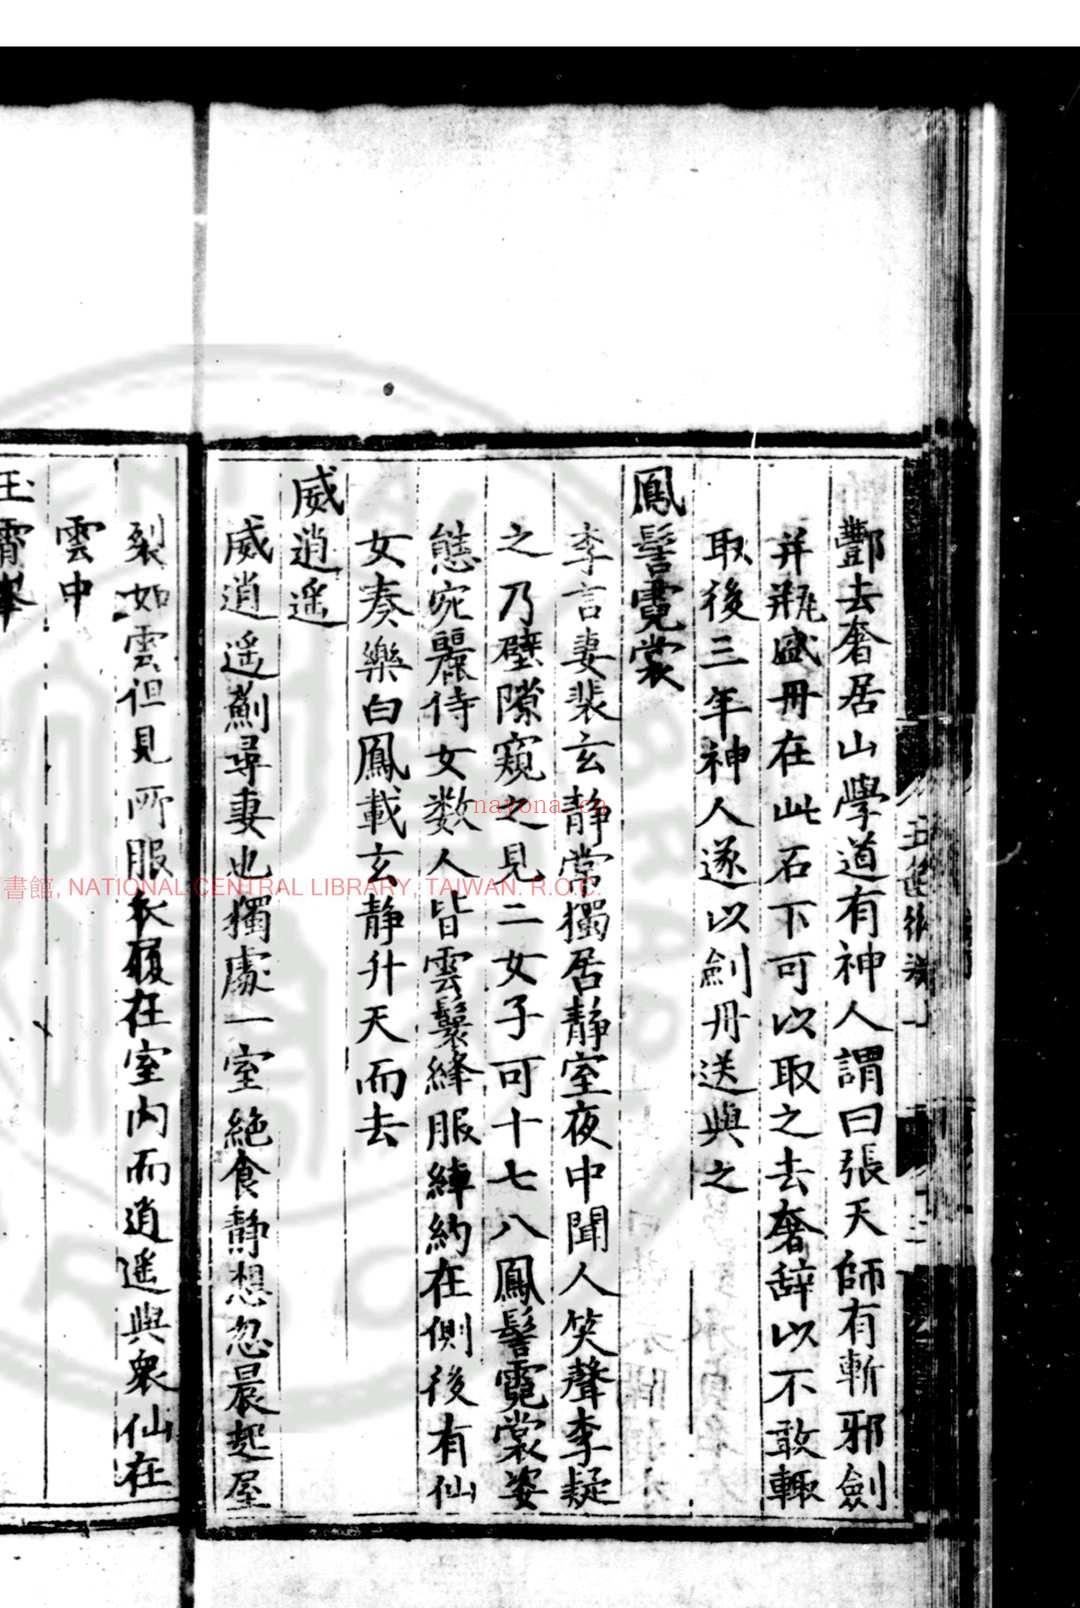 酆去奢居山學道有神人謂曰張天師有斬邪劍
并瓶盛丹在此石下可以取之去奢辞以不敢輙
取後三年神人遂以劍丹送與之
鳳髻霓裳
李言妻裴玄静常獨居静室夜中聞人笑聲李疑
之乃壁隙窺之見二女子可十七八鳳髻霓裳姿
態宛麗侍女数人皆雲鬟絳服綽約在側後有仙
女奏樂白鳳載玄静升天而去
戚逍遥
戚逍遥薊尋妻也獨處一室絶食静想忽晨起屋
裂如雲但見所服衣履在室内而逍遥與衆仙在
雲中
玉霄峯
書館, NATIONAL CENTRAL LIBRARY, TAIWAN. R.O.C.
nayona.cn